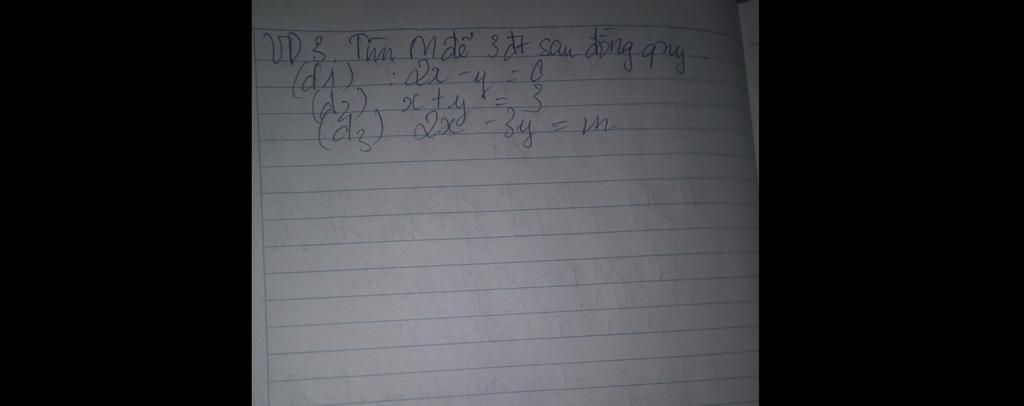 VD 3. Tìm m để 3 đt sau đồng quy.
(d1) : 2x - y = 0
(d2) x + y = 3
(d3) 2x - 3y = m